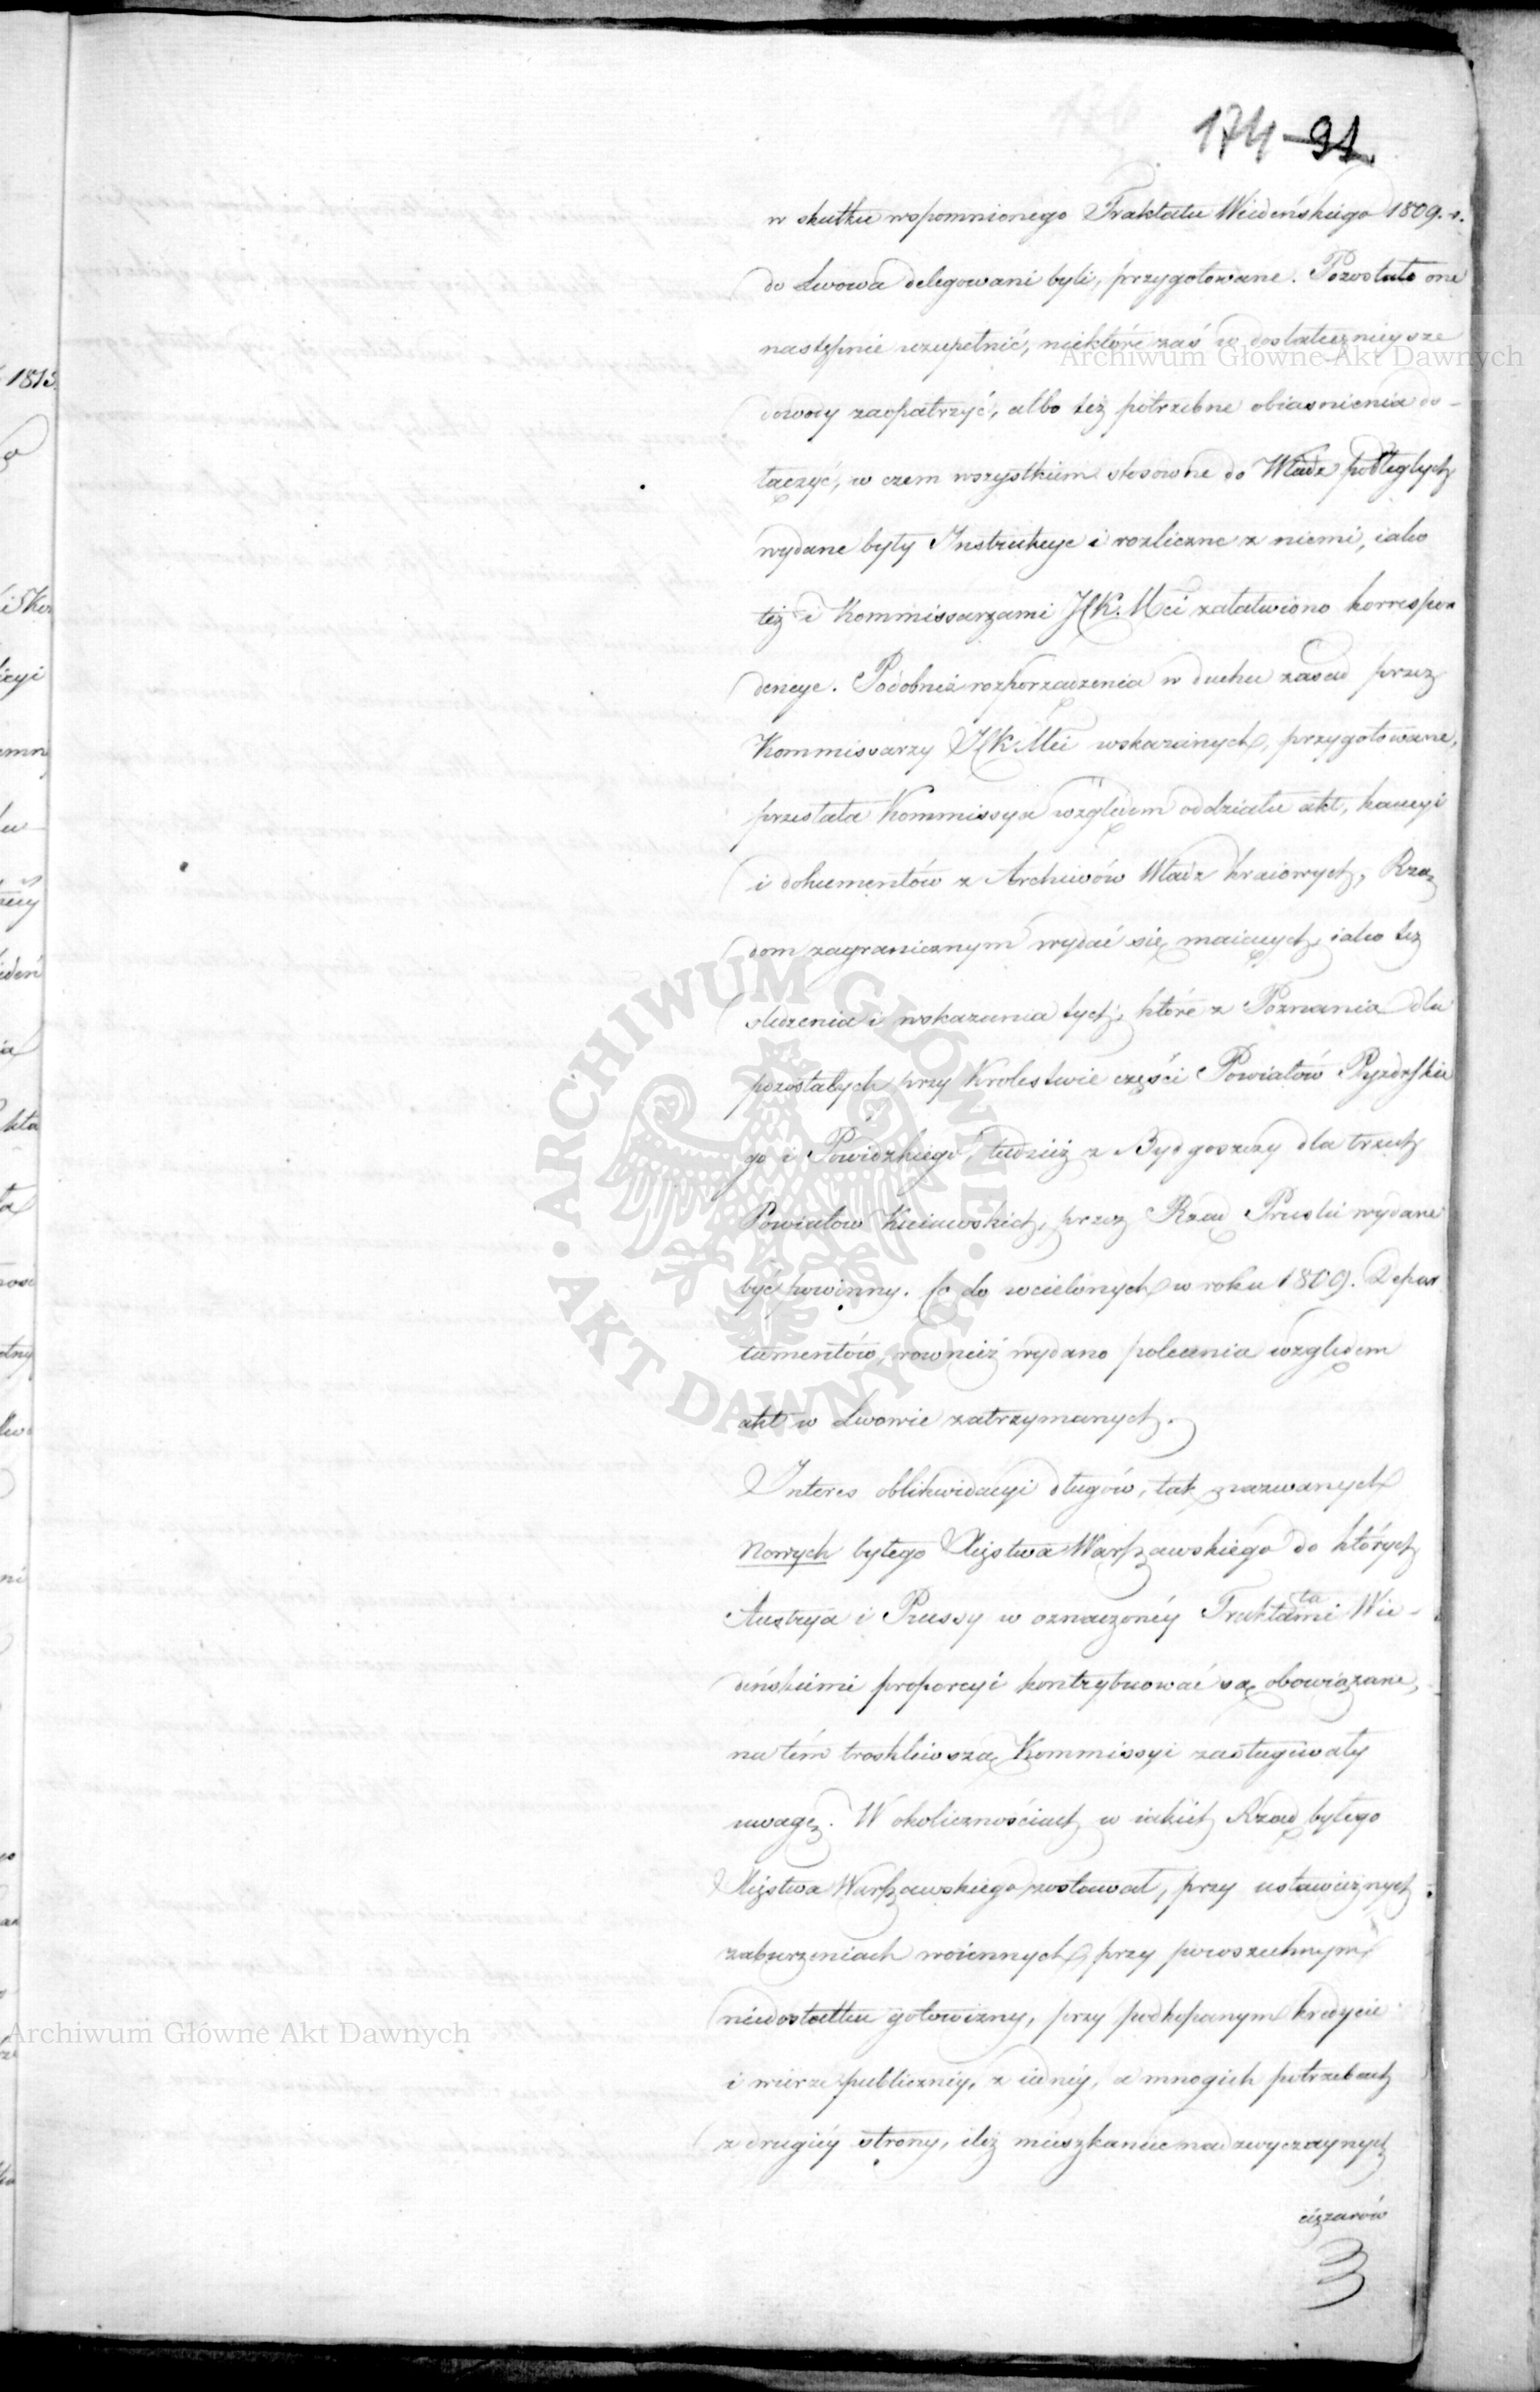 174 91
w skutku wspomnionego Traktatu Wiedeńskiego 1809. r.
do Lwowa delegowani byli, przygotowane. Pozostało one
następnie uzupełnić, niektóre zaś w dostatecznieysze
dowody zaopatrzyć, albo też potrzebne obiasnienia do-
łączyć, w czem wszystkiem stosowne do Władz podległych
wydane były Instrukcye i rozliczne z niemi, iako
też i Kommissarzami JCK. Mci załatwiono korrespon
dencye. Podobnież rozporządzenia w duchu zasad przez
Kommissarzy JCK. Mci wskazanych, przygotowane,
przesłała Kommissya względem oddziału akt, kaucyi
i dokumentów z Archiwów Władz kraiowych, Rzą-
dom zagranicznym wydać się maiących, iako też
śledzenia i wskazania tych, które z Poznania dla
pozostałych przy Krolestwie części Powiatów Pyzdrskie
go i Powidzkiego, tudzież z Bydgoszczy dla trzech
Powiatow Kuiawskich, przez Rząd Pruski wydane
być powinny. Co do wcielonych w roku 1809. Depar
tamentów, rownież wydano polecenia względem
akt w Lwowie zatrzymanych.
Interes oblikwidacyi długów, tak nazwanych
Nowych byłego Xięstwa Warszawskiego do których
Austrya i Prussy w oznaczonéy Traktatami Wie-
deńskiemi proporcyi kontrybuować są obowiązane,
na tém troskliwszą Kommissyi zasługiwały
uwagę. W okolicznościach w iakich Rząd byłego
Xięstwa Warszawskiego zostawał, przy ustawicznych
zaburzeniach woiennych, przy powszechnym
niedostatku gotowizny, przy podkopanym kredycie
i wierze publicznéy, z iednéy, a mnogich potrzebach
z drugiéy strony, iliż mieszkańce nadzwyczaynych
ciężarów